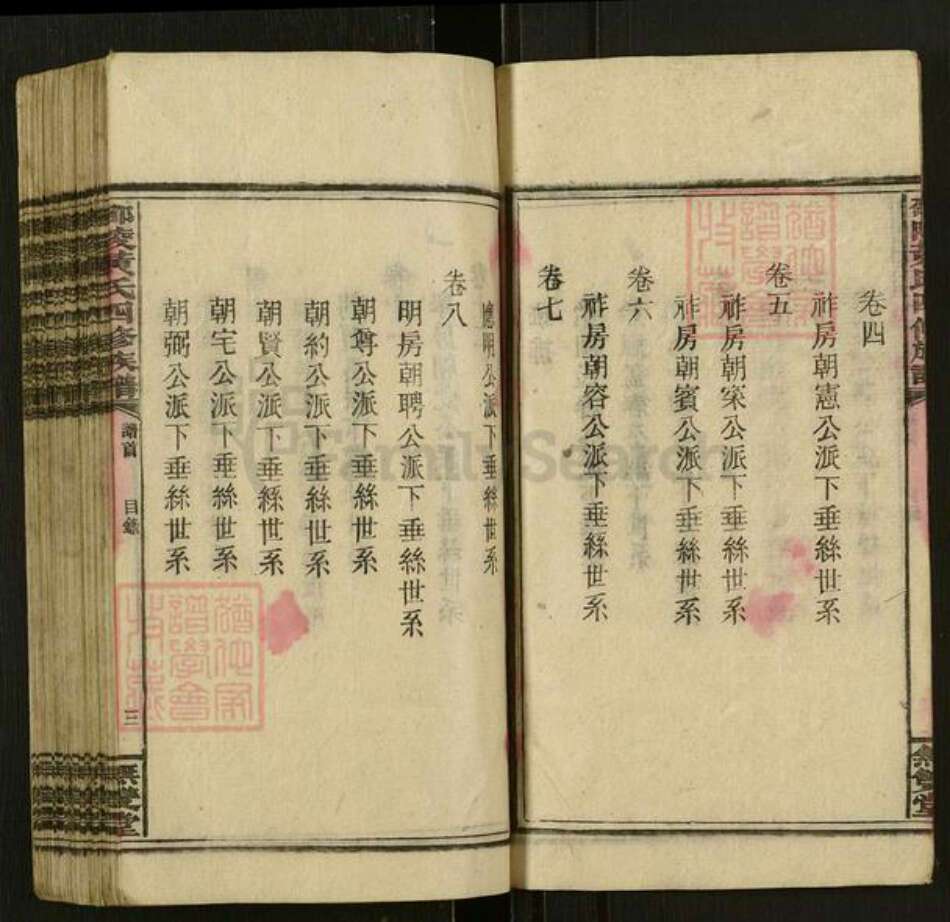 卷四
祚房朝憲公派下垂絲世系
卷五
祚房朝寀公派下垂絲世系
祚房朝賓公派下垂絲世系
卷六
祚房朝容公派下垂絲世系
卷七
應明公派下垂絲世系
卷八
明房朝聘公派下垂絲世系
朝尊公派下垂絲世系
朝約公派下垂絲世系
朝賢公派下垂絲世系
朝宅公派下垂絲世系
朝弼公派下垂絲世系
邵陵黃氏四修族譜
譜首
目錄
三
無雙堂
FamilySearch